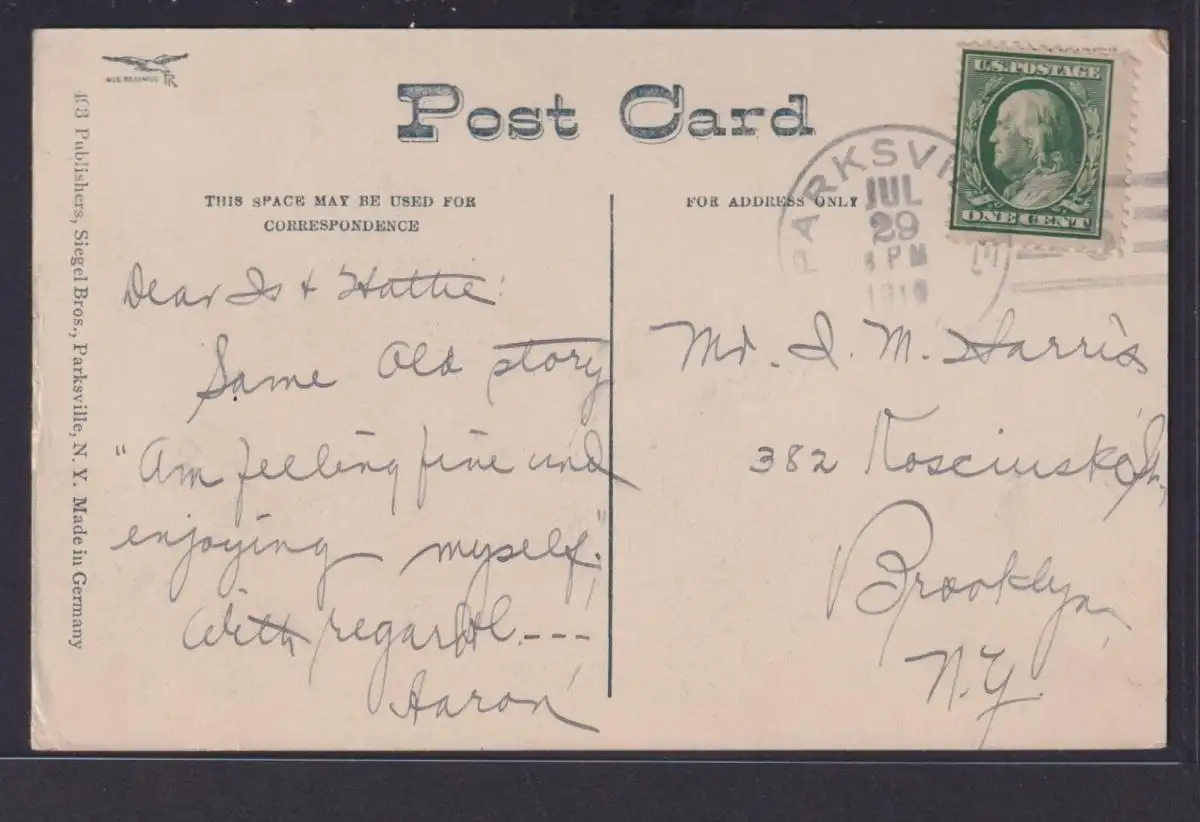 Post Card
THIS SPACE MAY BE USED FOR
CORRESPONDENCE
FOR ADDRESS ONLY
U.S. POSTAGE
ONE CENT
PARKSVI
JUL
29
PM
403 Publishers, Siegel Bros., Parksville, N. Y. Made in Germany
Dear Is & Hattie:
Same Old story
"Am feeling fine and
enjoying myself."
With regards ---
Aaron
Mr. I. M. Harris
382 Kosciusko St.,
Brooklyn,
N.Y.